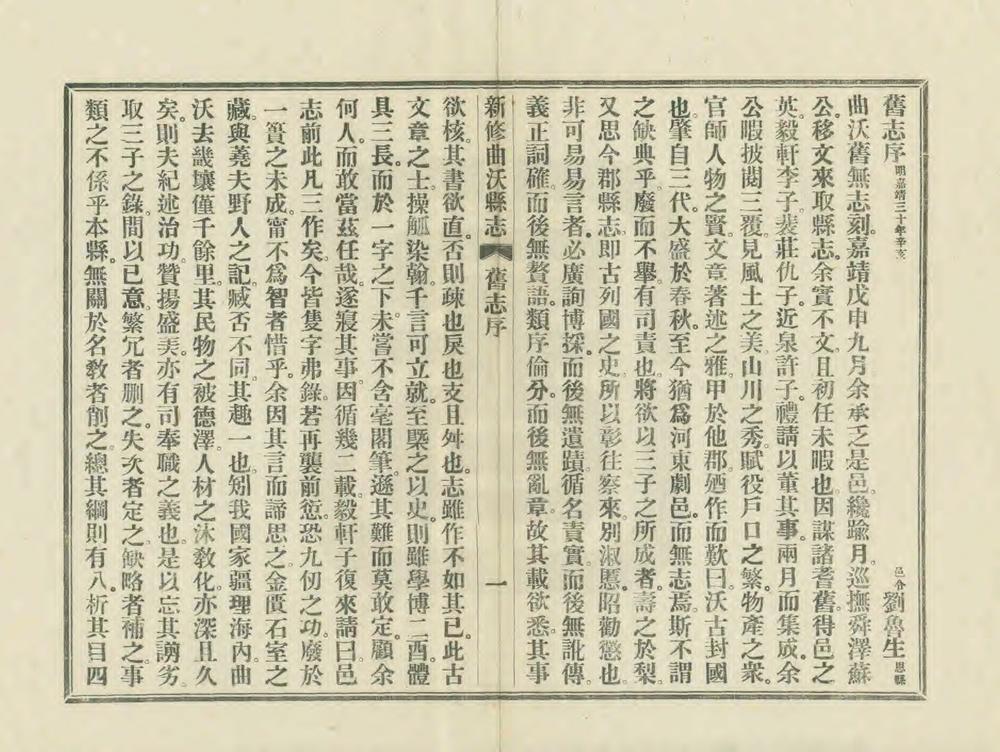 舊志序 明嘉靖三十年辛亥 邑令劉魯生恩縣
曲沃舊無志刻。嘉靖戊申九月。余承乏是邑。纔踰月。巡撫舜澤蘇
公。移文來取縣志。余實不文。且初任未暇也。因謀諸耆舊。得邑之
英。毅軒李子。裴莊仇子。近泉許子。禮請以董其事。兩月而集成。余
公暇披閱三覆。見風土之美。山川之秀。賦役戶口之繁。物產之衆。
官師人物之賢。文章著述之雅。甲於他郡。廼作而歎曰。沃古封國
也。肇自三代。大盛於春秋。至今猶爲河東劇邑。而無志焉。斯不謂
之缺典乎。廢而不舉。有司責也。將欲以三子之所成者。壽之於梨。
又思今郡縣志。即古列國之史。所以彰往察來。別淑慝。昭勸懲也。
非可易易言者。必廣詢博採。而後無遺蹟。循名責實。而後無訛傳。
義正詞確。而後無贅語。類序倫分。而後無亂章。故其載欲悉。其事
新修曲沃縣志 舊志序 一
欲核。其書欲直。否則疎也戾也支且舛也。志雖作。不如其已。此古
文章之士。操觚染翰。千言可立就。至槩之以史。則雖學博二酉。體
具三長。而於一字之下。未嘗不含毫閣筆。遜其難而莫敢定。顧余
何人。而敢當茲任哉。遂寢其事。因循幾二載。毅軒子復來請曰。邑
志前此凡三作矣。今皆隻字弗錄。若再襲前愆。恐九仞之功。廢於
一簣之未成。甯不爲智者惜乎。余因其言而諦思之。金匱石室之
藏。與蕘夫野人之記。臧否不同。其趣一也。矧我國家疆理海內。曲
沃去畿壤僅千餘里。其民物之被德澤。人材之沐敎化。亦深且久
矣。則夫紀述治功。贊揚盛美。亦有司奉職之義也。是以忘其謭劣。
取三子之錄。間以己意。繁冗者删之。失次者定之。缺略者補之。事
類之不係乎本縣。無關於名敎者削之。總其綱則有八。析其目四